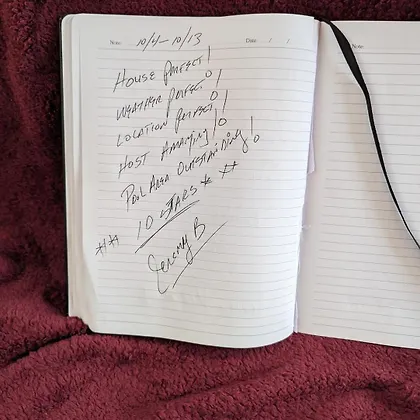 Note: 10/4 - 10/13 Date: / /
HOUSE PERFECT!
WEATHER PERFECT!
LOCATION PERFECT!
HOST AMAZING!
POOL AREA OUTSTANDING!
** 10 STARS * **
Jeremy B